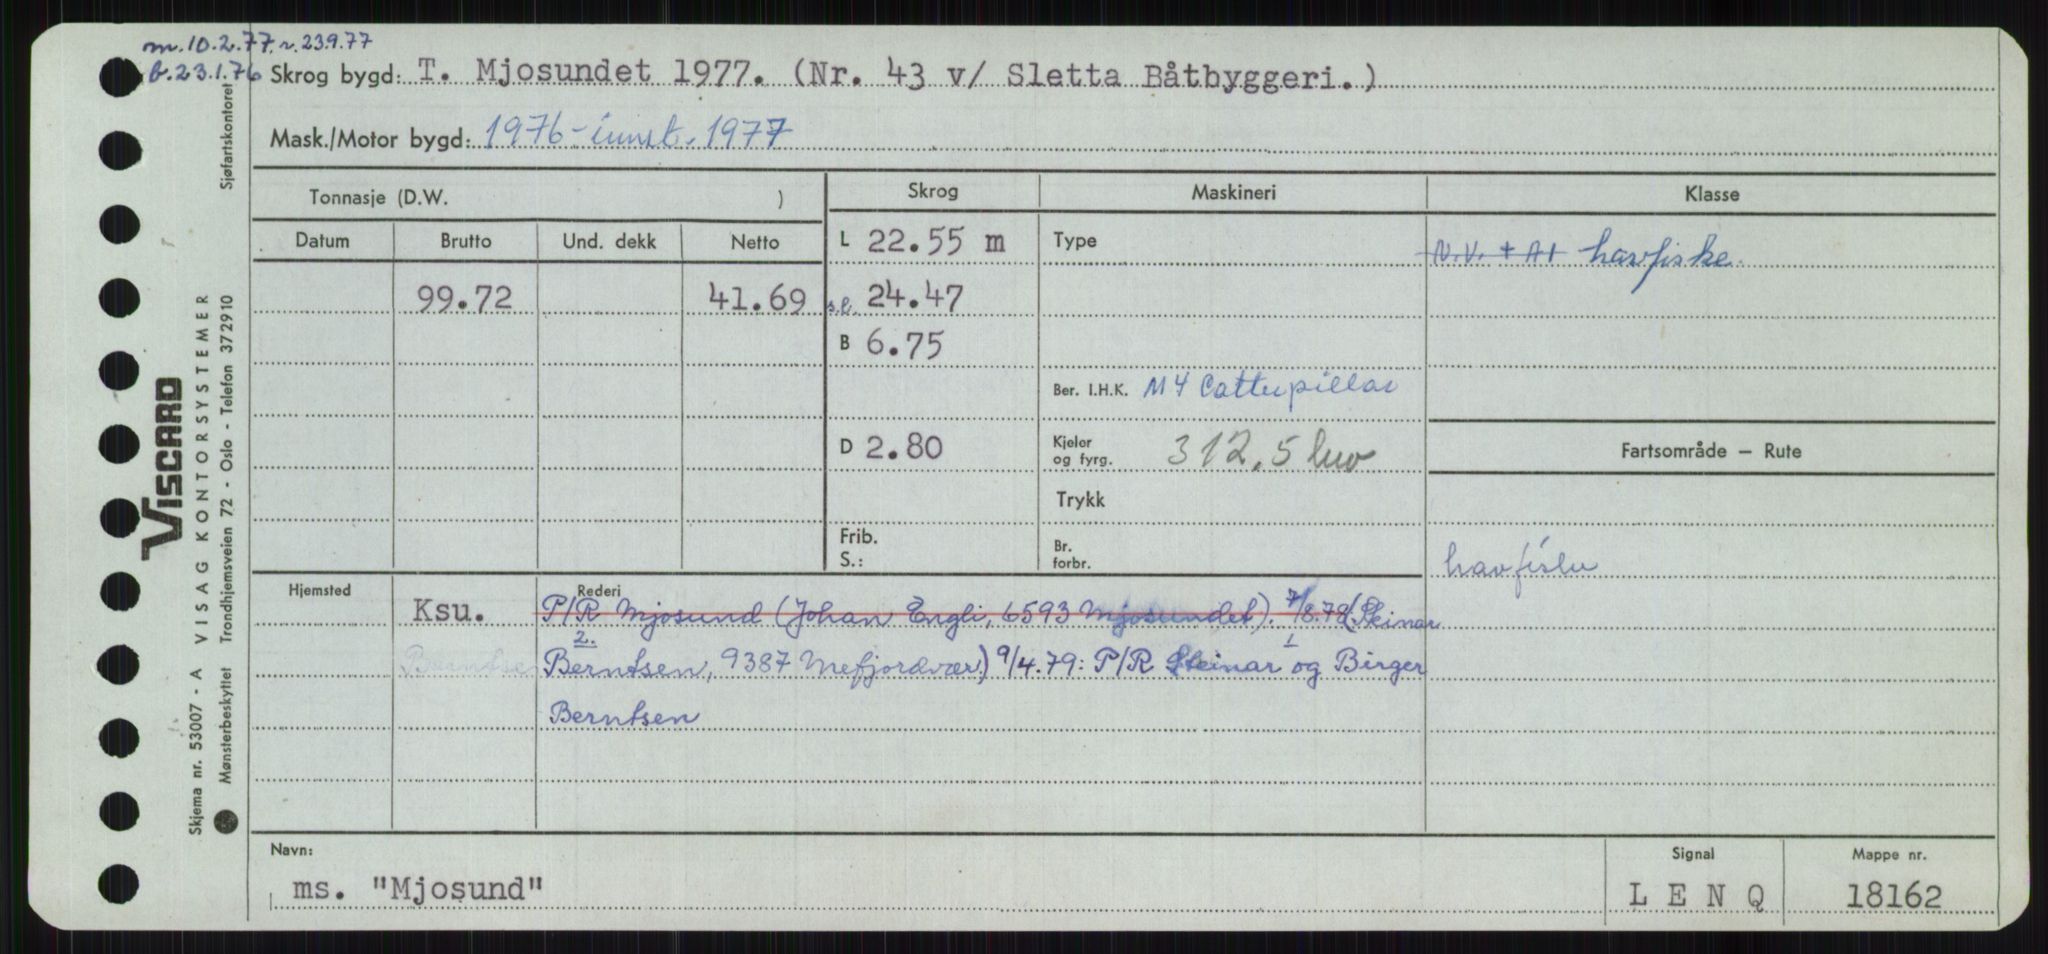 m. 10.2.77. n. 23.9.77
b. 23.1.76
Skrog bygd: T. Mjosundet 1977. (Nr. 43 v/ Sletta Båtbyggeri.)
Mask./Motor bygd: 1976 - innst. 1977
Tonnasje (D.W. )
Skrog
Maskineri
Klasse
Datum Brutto Und. dekk Netto
L 22.55 m
Type
N.V. + A+ havfiske.
99.72 41.69
s.l. 24.47
B 6.75
Ber. I.H.K. M4 Catterpillar
D 2.80
Kjeler og fyrg. 312,5
Fartsområde — Rute
Trykk
Frib.
S.:
Br. forbr.
havfiske
Hjemsted
Rederi
Ksu. P/R Mjosund (Johan Engli, 6593 Mjosundet). 7/8.78 (Steinar
2.
1
Berntsen Berntsen, 9387 Mefjordvær) 9/4.79: P/R Steinar og Birger
Berntsen
Navn:
ms. "Mjosund"
Signal
L E N Q
Mappe nr.
18162
Sjøfartskontoret
VISCARD
VISAG KONTORSYSTEMER
Trondhjemsveien 72 - Oslo - Telefon 372910
Skjema nr. 53007 - A
Mønsterbeskyttet